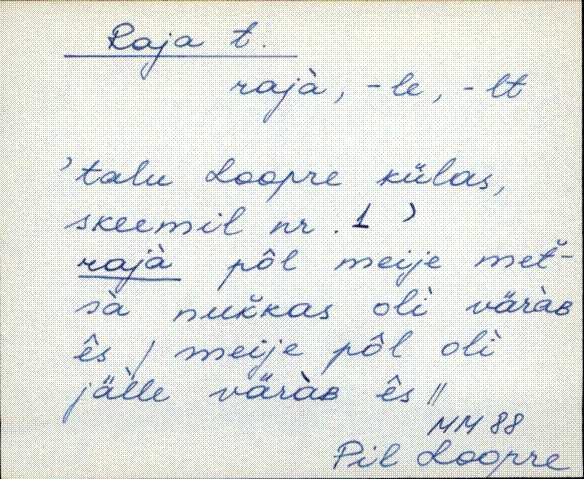 Raja t.
rajà, -le, -lt
'talu Loopre külas,
skeemil nr. 1'
rajà pôl meije met̆-
sà nuk̆kas oli väràʙ
ês / meije pôl oli
jälle väràʙ ês //
MM 88
Pil Loopre